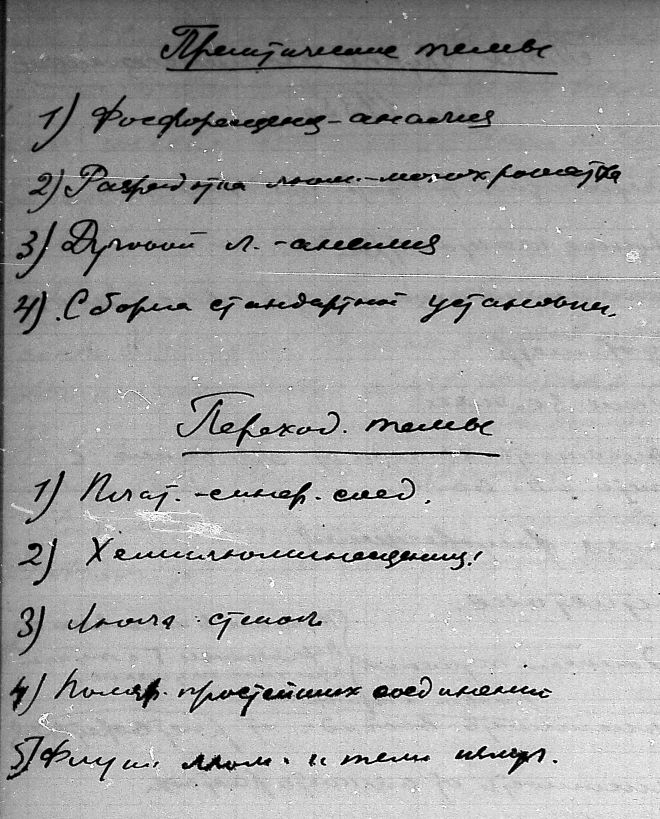 Практические темы
1) Фосфоресценц-анализ
2) Разработка люм.-монохроматра
3) Дуговой л.-анализ
4) Сборка стандартной установки.
Переход. темы
1) Плат.-синер. соед.
2) Хемилюминесценц!
3) Люм-я стекол
4) Поляр. простейших соединений
5) люм. и